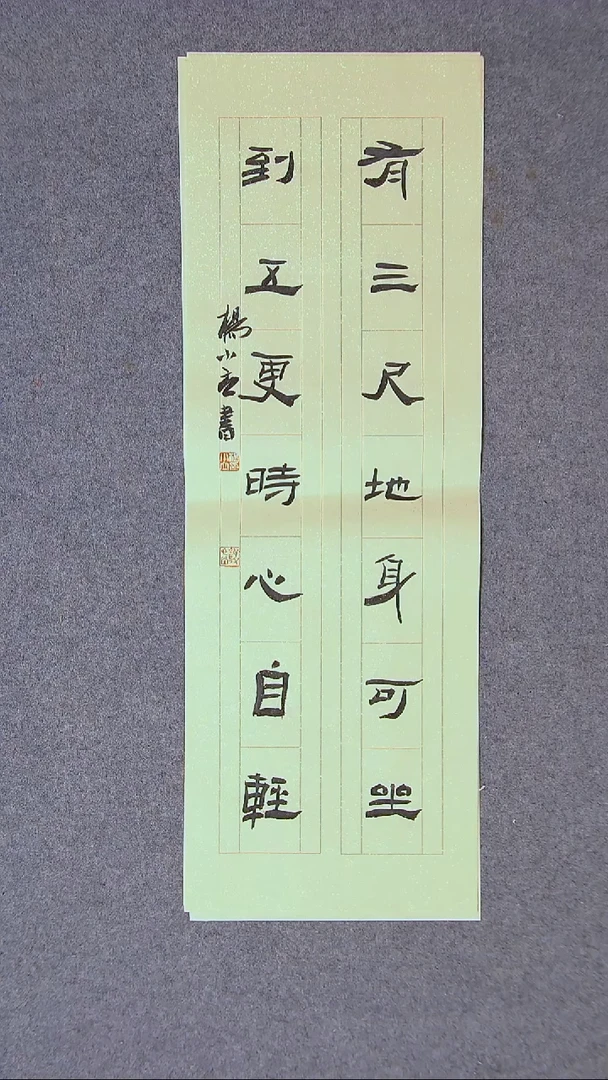 有三尺地身可坐
到五更時心自輕
楊小书書